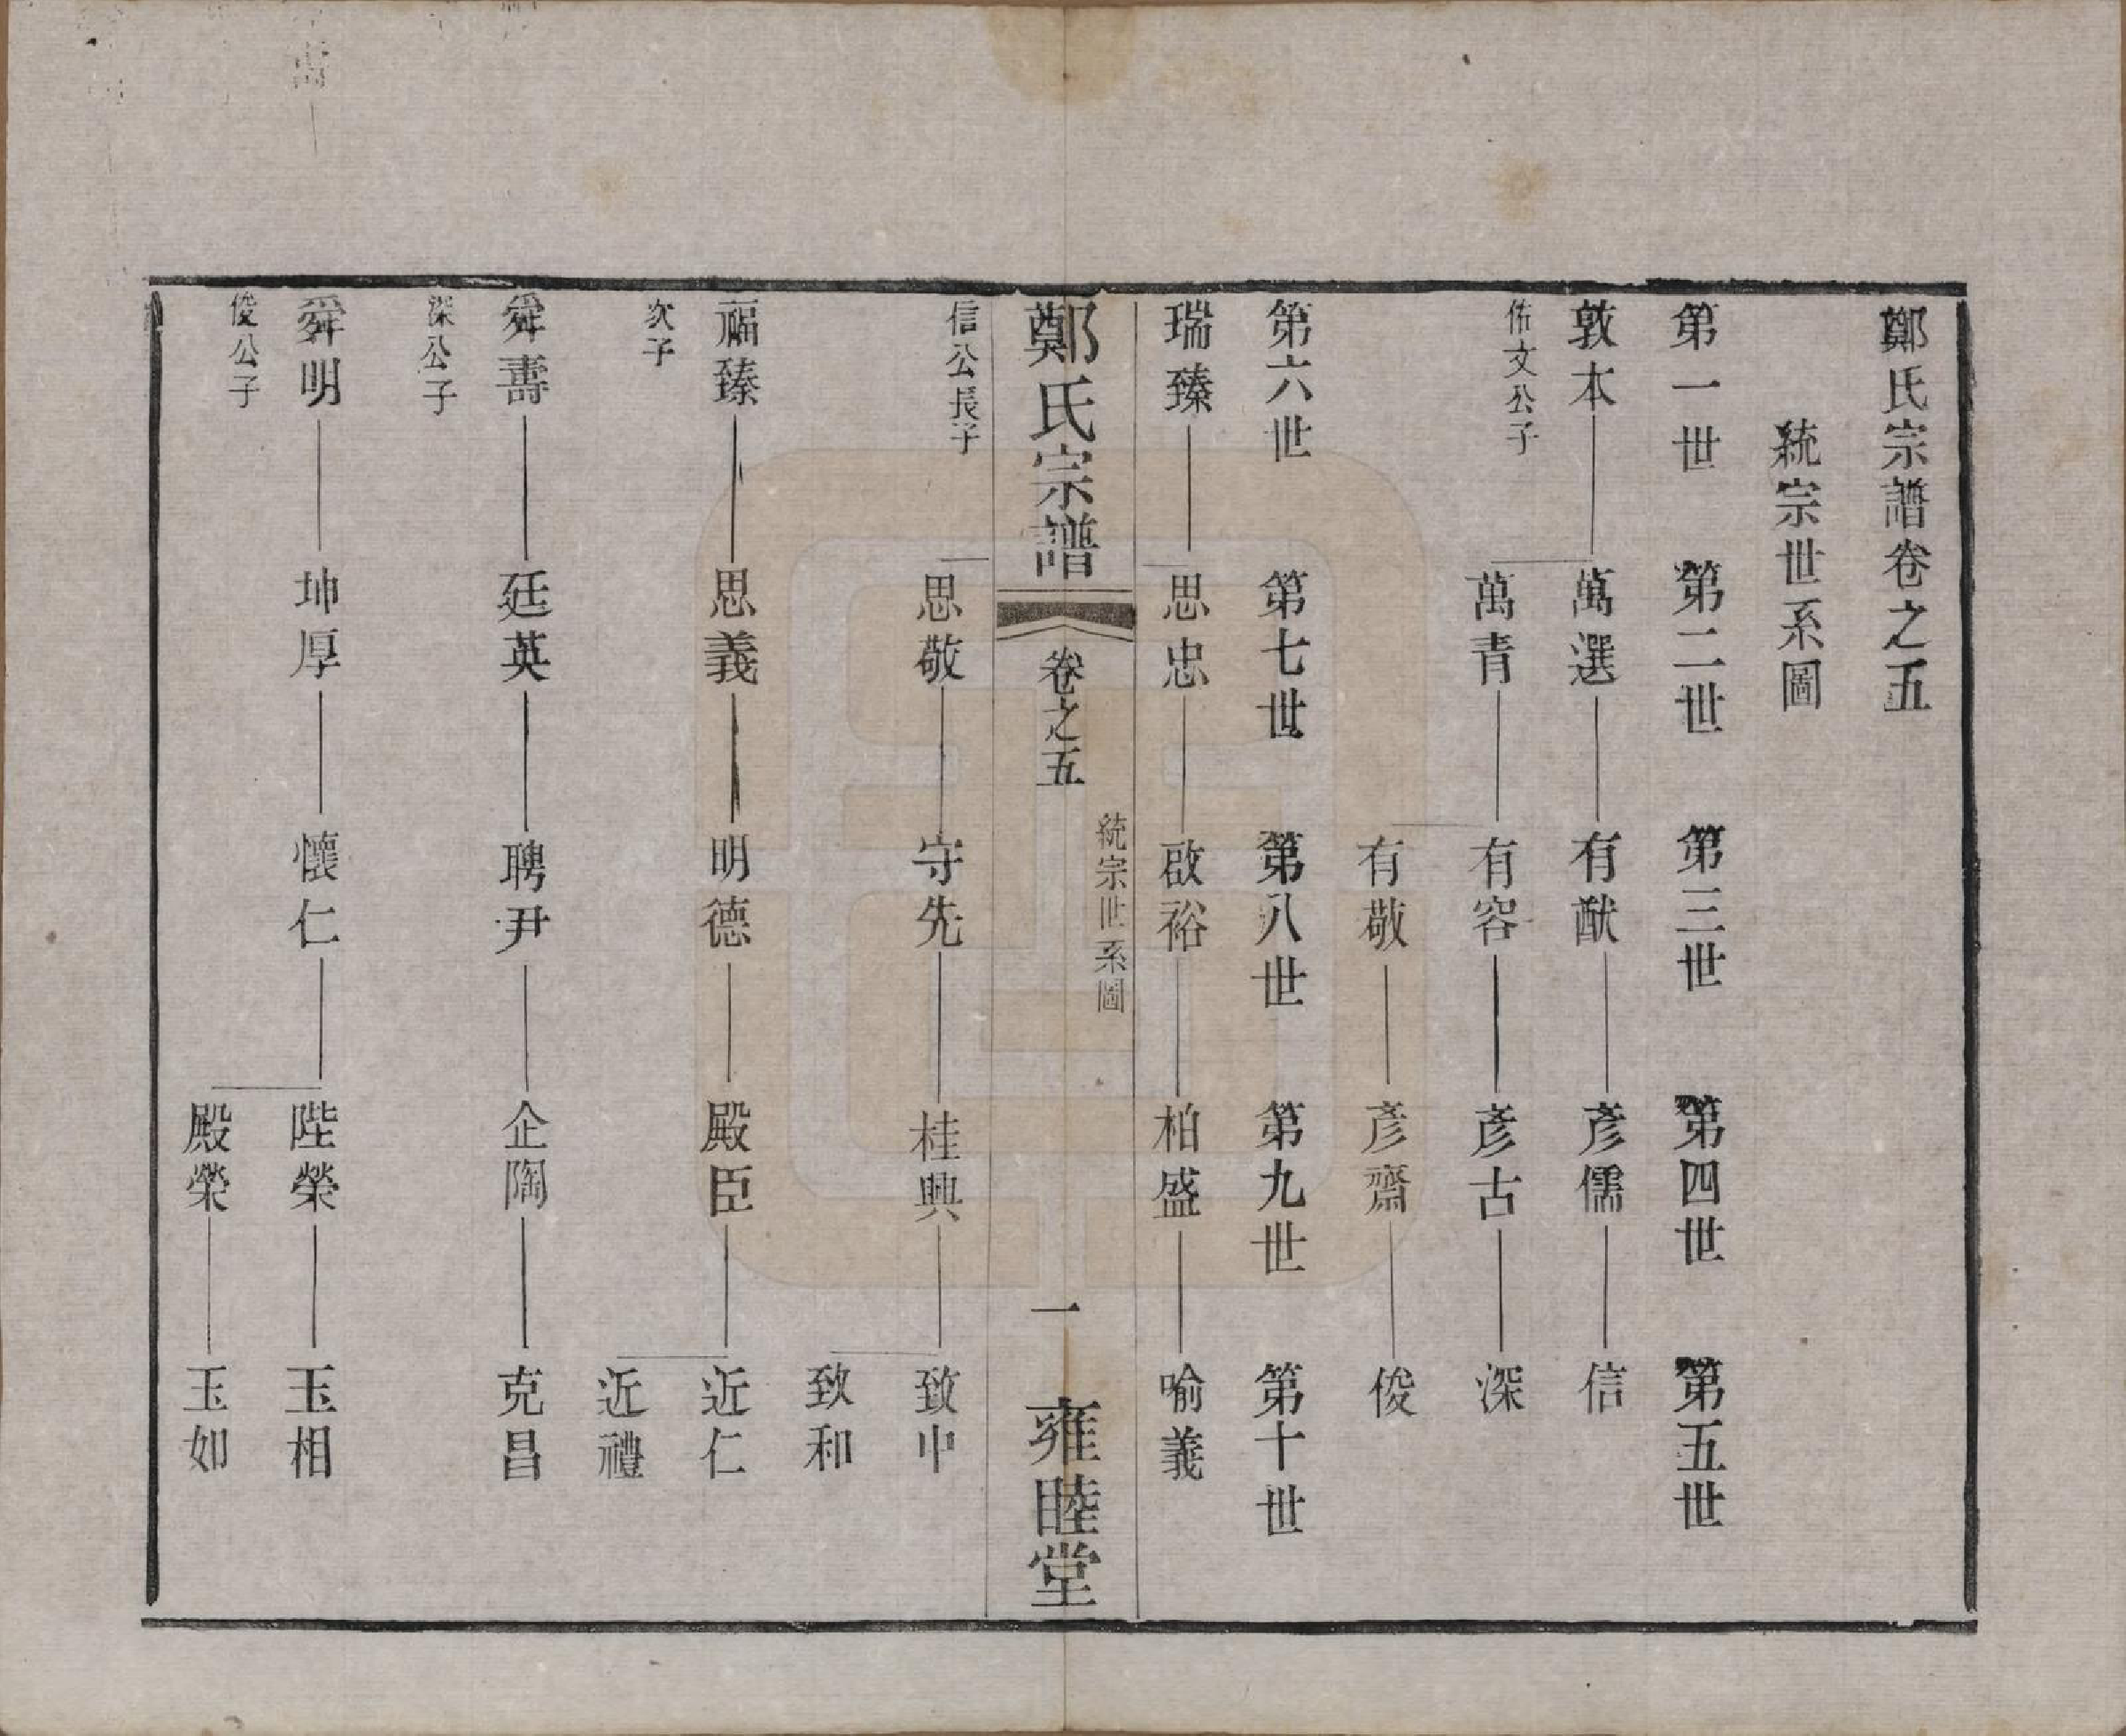 鄭氏宗譜卷之五
統宗世系圖
第一世 第二世 第三世 第四世 第五世
敦本 萬選 有猷 彥儒 信
佑文公子
萬青 有容 彥古 深
有敬 彥齋 俊
第六世 第七世 第八世 第九世 第十世
瑞臻 思忠 啟裕 柏盛 喻義
統宗世系圖
鄭氏宗譜 卷之五 一 雍睦堂
信公長子
思敬 守先 桂興 致中
致和
福臻 思義 明德 殿臣 近仁
次子
近禮
舜壽 廷英 聘尹 企陶 克昌
深公子
舜明 坤厚 懷仁 陛榮 玉相
俊公子
殿榮 玉如